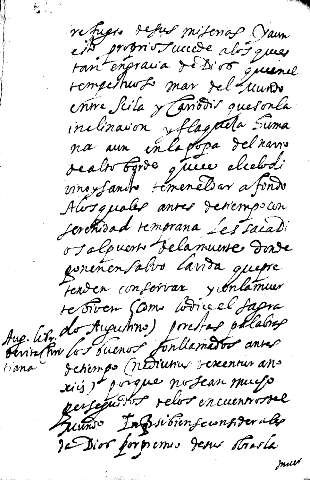 refugio de sus miserias (y aun
esto proprio sucede a los que es
tan en gracia de Dios que en el
tempestuoso mar del mundo
entre Scila y Caribdis que son la
inclinacion y flaqueça huma
na aun en la popa del navio
de alto borde que es el celo di
vino y sancto temen el dar a fondo
A los quales antes de tiempo con
serenidad temprana les saca di
os al puerto de la muerte donde
ponen en salvo la vida que pre
tenden conservar y en la muer
te viven (Como lo dice el sagra
do Augustino) por estas palabras
Aug. lib.
de vita Chris
tiana
los buenos son llamados antes
de tiempo (ne diutius vexentur a no
xiis) porque no sean mucho
perseguidos de los encuentros del
mundo
da Dios por premio de sus obras la
muer